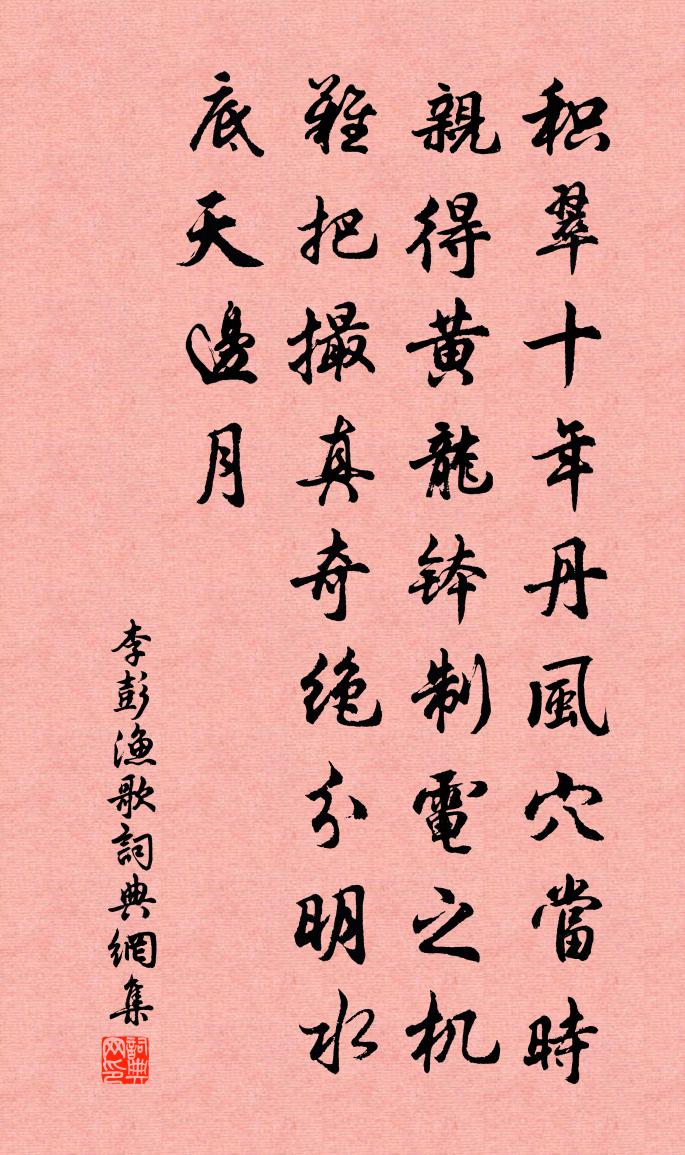 积翠十年丹風穴當時
親得黄龍鉢制電之机
難把撮真奇絶分明水
底天邊月
李彭漁歌詞典網集
詞典网印